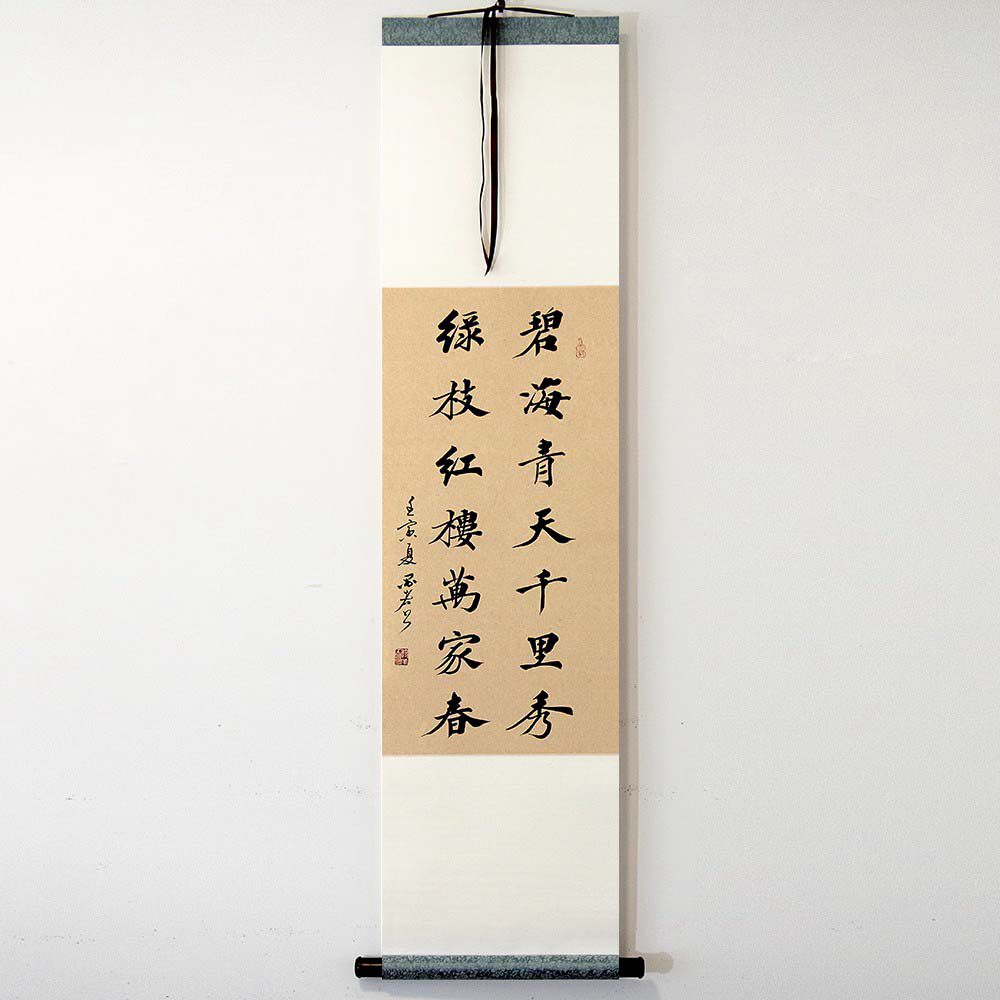 碧海青天千里秀
綠枝紅樓萬家春
壬寅夏